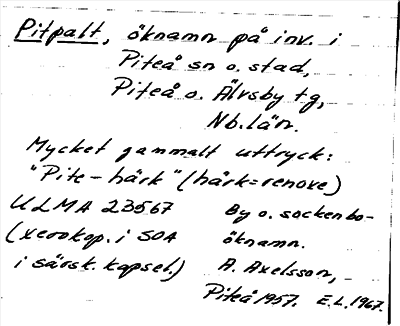 Pitpalt, öknamn på inv. i
Piteå sn o. stad,
Piteå o. Älvsby tg,
Nb.län.
Mycket gammalt uttryck:
"Pite-härk" (härk=renoxe)
ULMA 23567
(xerokop. i SOA
i särsk. kapsel.)
By o. sockenbo-
öknamn.
A. Axelsson,
Piteå 1957. E.L. 1967.